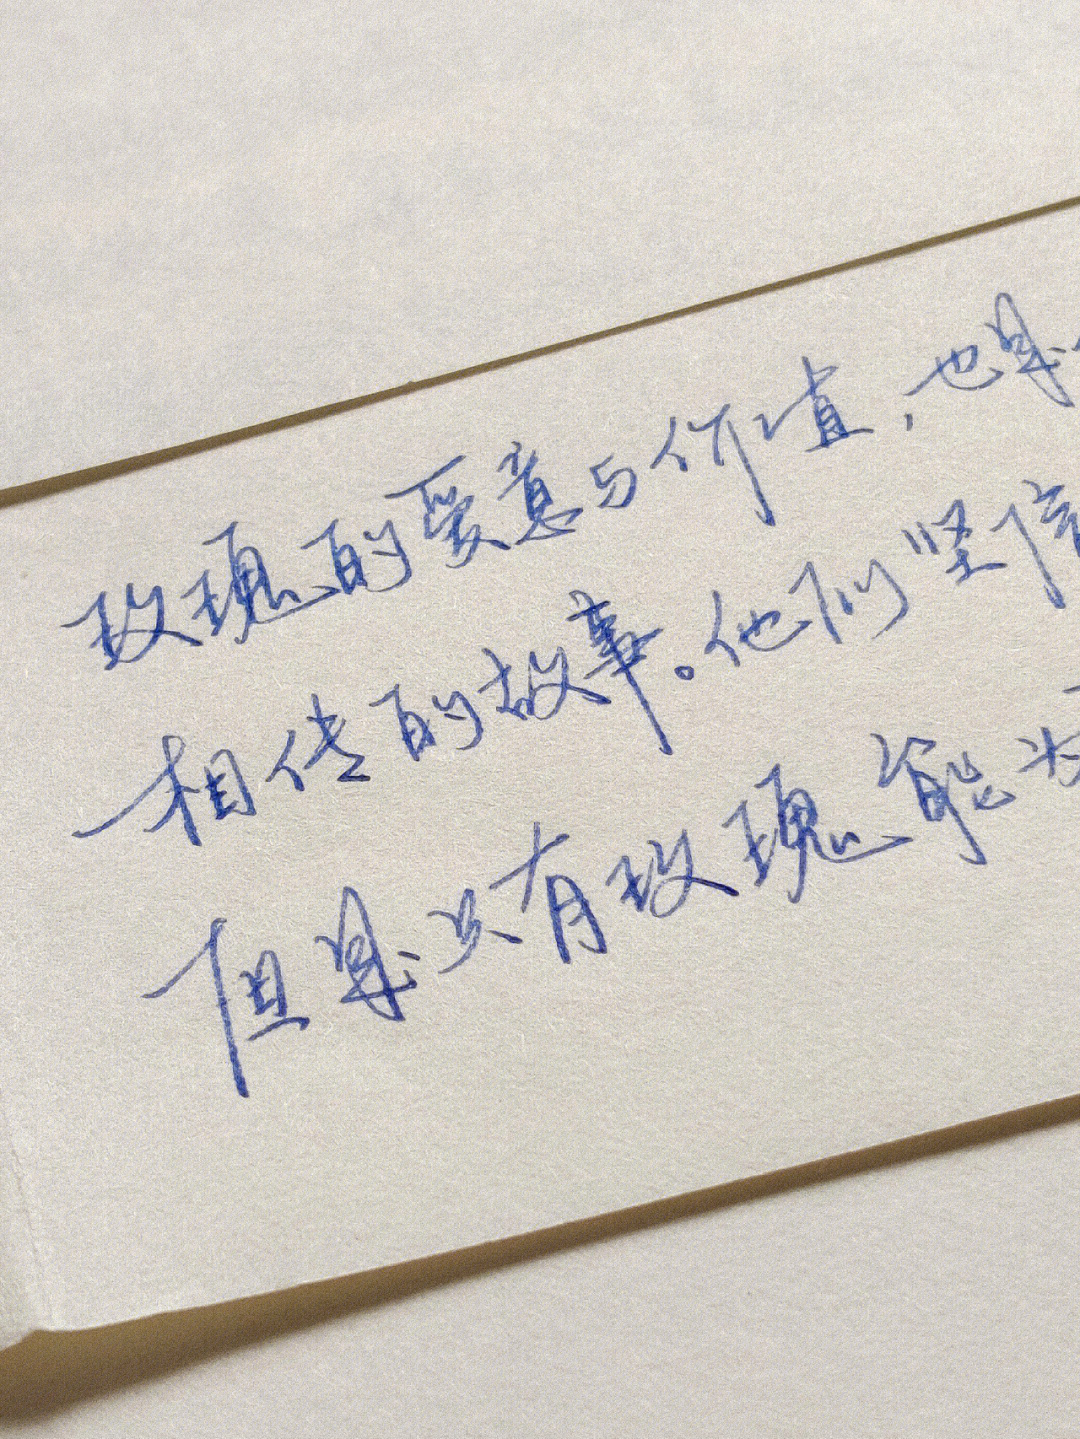 玫瑰的爱意与价值，也是
相传的故事。他们坚信
但是只有玫瑰能为